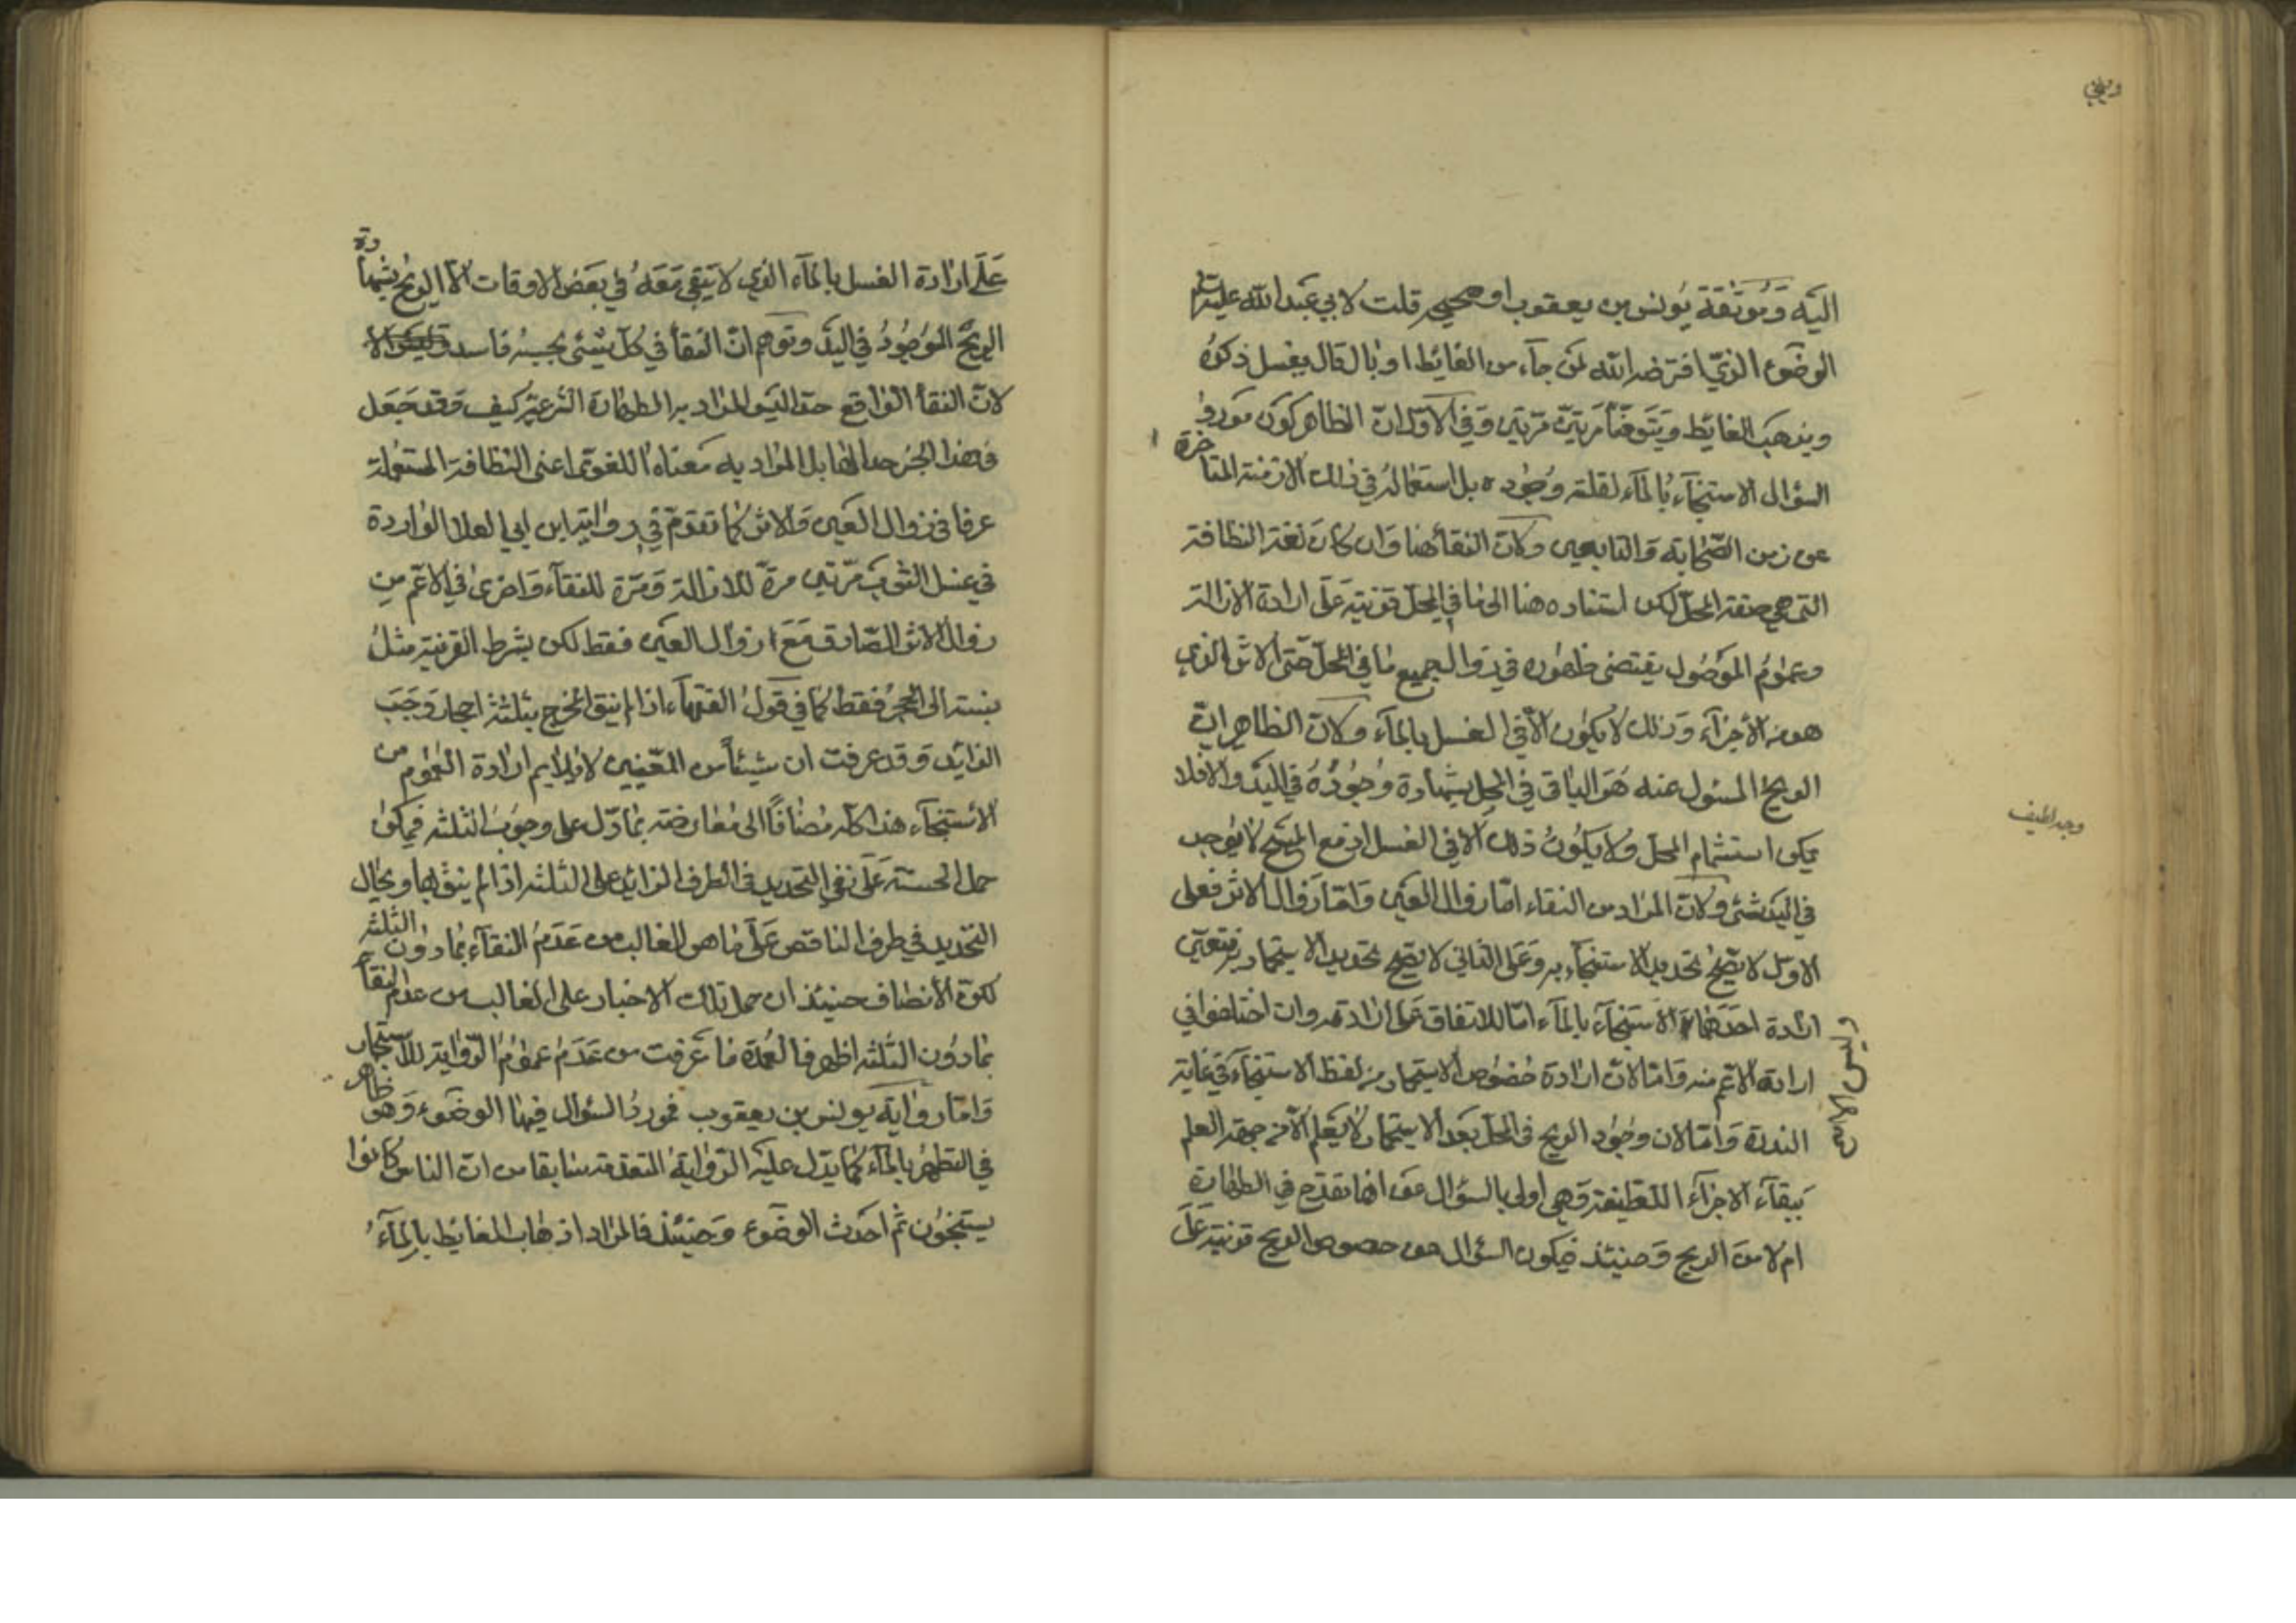 اليه وموثقة يونس بن يعقوب او صحيحه قلت لابي عبد الله عليه السلام
الوضوء الذي افترضه الله لمن جاء من الغائط او بال قال يغسل ذكره
ويذهب الغائط ويتوضأ مرتين مرتين وفي الاول ان الظاهر كون مورد
السؤال الاستنجاء بالماء لقلة وجوده بل استعماله في ذلك الازمنة المتاخرة
عن زمن الصحابة والتابعين ولان النقاء هنا وان كان لغة النظافة
التي هي صفة المحل لكن استناده هنا الى ما في المحل قرينة على ارادة الازالة
وعموم الموصول يقتضي ظهوره في زوال جميع ما في المحل حتى الاثر الذي
هو من الأجزاء وذلك لا يكون الا في الغسل بالماء ولان الظاهر ان
الريح المسئول عنه هو الباقي في المحل بشهادة وجوده في اليد والا فلا
يمكن استشمام المحل ولا يكون ذلك الا في الغسل اذ مع المسح لا يوجد
في اليد شئ ولان المراد من النقاء اما زوال العين واما زوال الاثر فعلى
الاول لا يصح تحديد الاستنجاء به وعلى الثاني لا يصح تحديد الاستجمار فتعين
ارادة احدهما وليس الا الاستنجاء بالماء اما للاتفاق على ارادته وان اختلفوا في
ارادة الاعم منه واما لان ارادة خصوص الاستجمار من لفظ الاستنجاء في غاية
الندرة واما لان وجود الريح في المحل بعد الاستجمار لا يعلم الا من جهة العلم
ببقاء الاجزاء اللطيفة وهي اولى بالسؤال عن انها تقدح في الطهارة
ام لا من الريح وحينئذ فيكون السؤال عن خصوص الريح قرينة على
وجه لطيف
على ارادة الغسل بالماء الذي لا يبقى معه في بعض الاوقات الا الريح بشهادة
الريح الموجود في اليد وتوهم ان النقاء في كل شئ بحسبه فاسد
لان النقاء الواقع حدا ليس المراد به الطهارة الشرعية كيف وقد جعل
في هذا الخبر حدا لها بل المراد به معناه اللغوي اعني النظافة المستعملة
عرفا في زوال العين والاثر كما تقدم في رواية ابن ابي العلا الواردة
في غسل الثوب مرتين مرة للازالة ومرة للنقاء واخرى في الاعم من
زوال الاثر الصادق مع زوال العين فقط لكن بشرط القرينة مثل
نسبته الى الحجر فقط كما في قول الفقهاء اذا لم ينق المخرج بثلثة احجار وجب
الزايد وقد عرفت ان شيئا من المعنيين لا يلايم ارادة العموم من
الاستنجاء هذا كله مضافا الى معارضته بما دل على وجوب الثلثة فيمكن
حمل الحسنة على نفي التحديد في الطرف الزايد على الثلثة اذا لم ينق بها ويحال
التحديد في طرف الناقص على ما هو الغالب من عدم النقاء بما دون الثلثة
لكن الأنصاف حينئذ ان حمل تلك الاخبار على الغالب من عدم النقاء
بما دون الثلثة اظهر فالعمدة ما عرفت من عدم عموم الرواية للاستجمار
واما رواية يونس بن يعقوب فمورد السؤال فيها الوضوء وهو ظاهر
في التطهر بالماء كما يدل عليه الرواية المتقدمة سابقا من ان الناس كانوا
يستنجون ثم احدث الوضوء وحينئذ فالمراد اذهاب الغائط بالماء